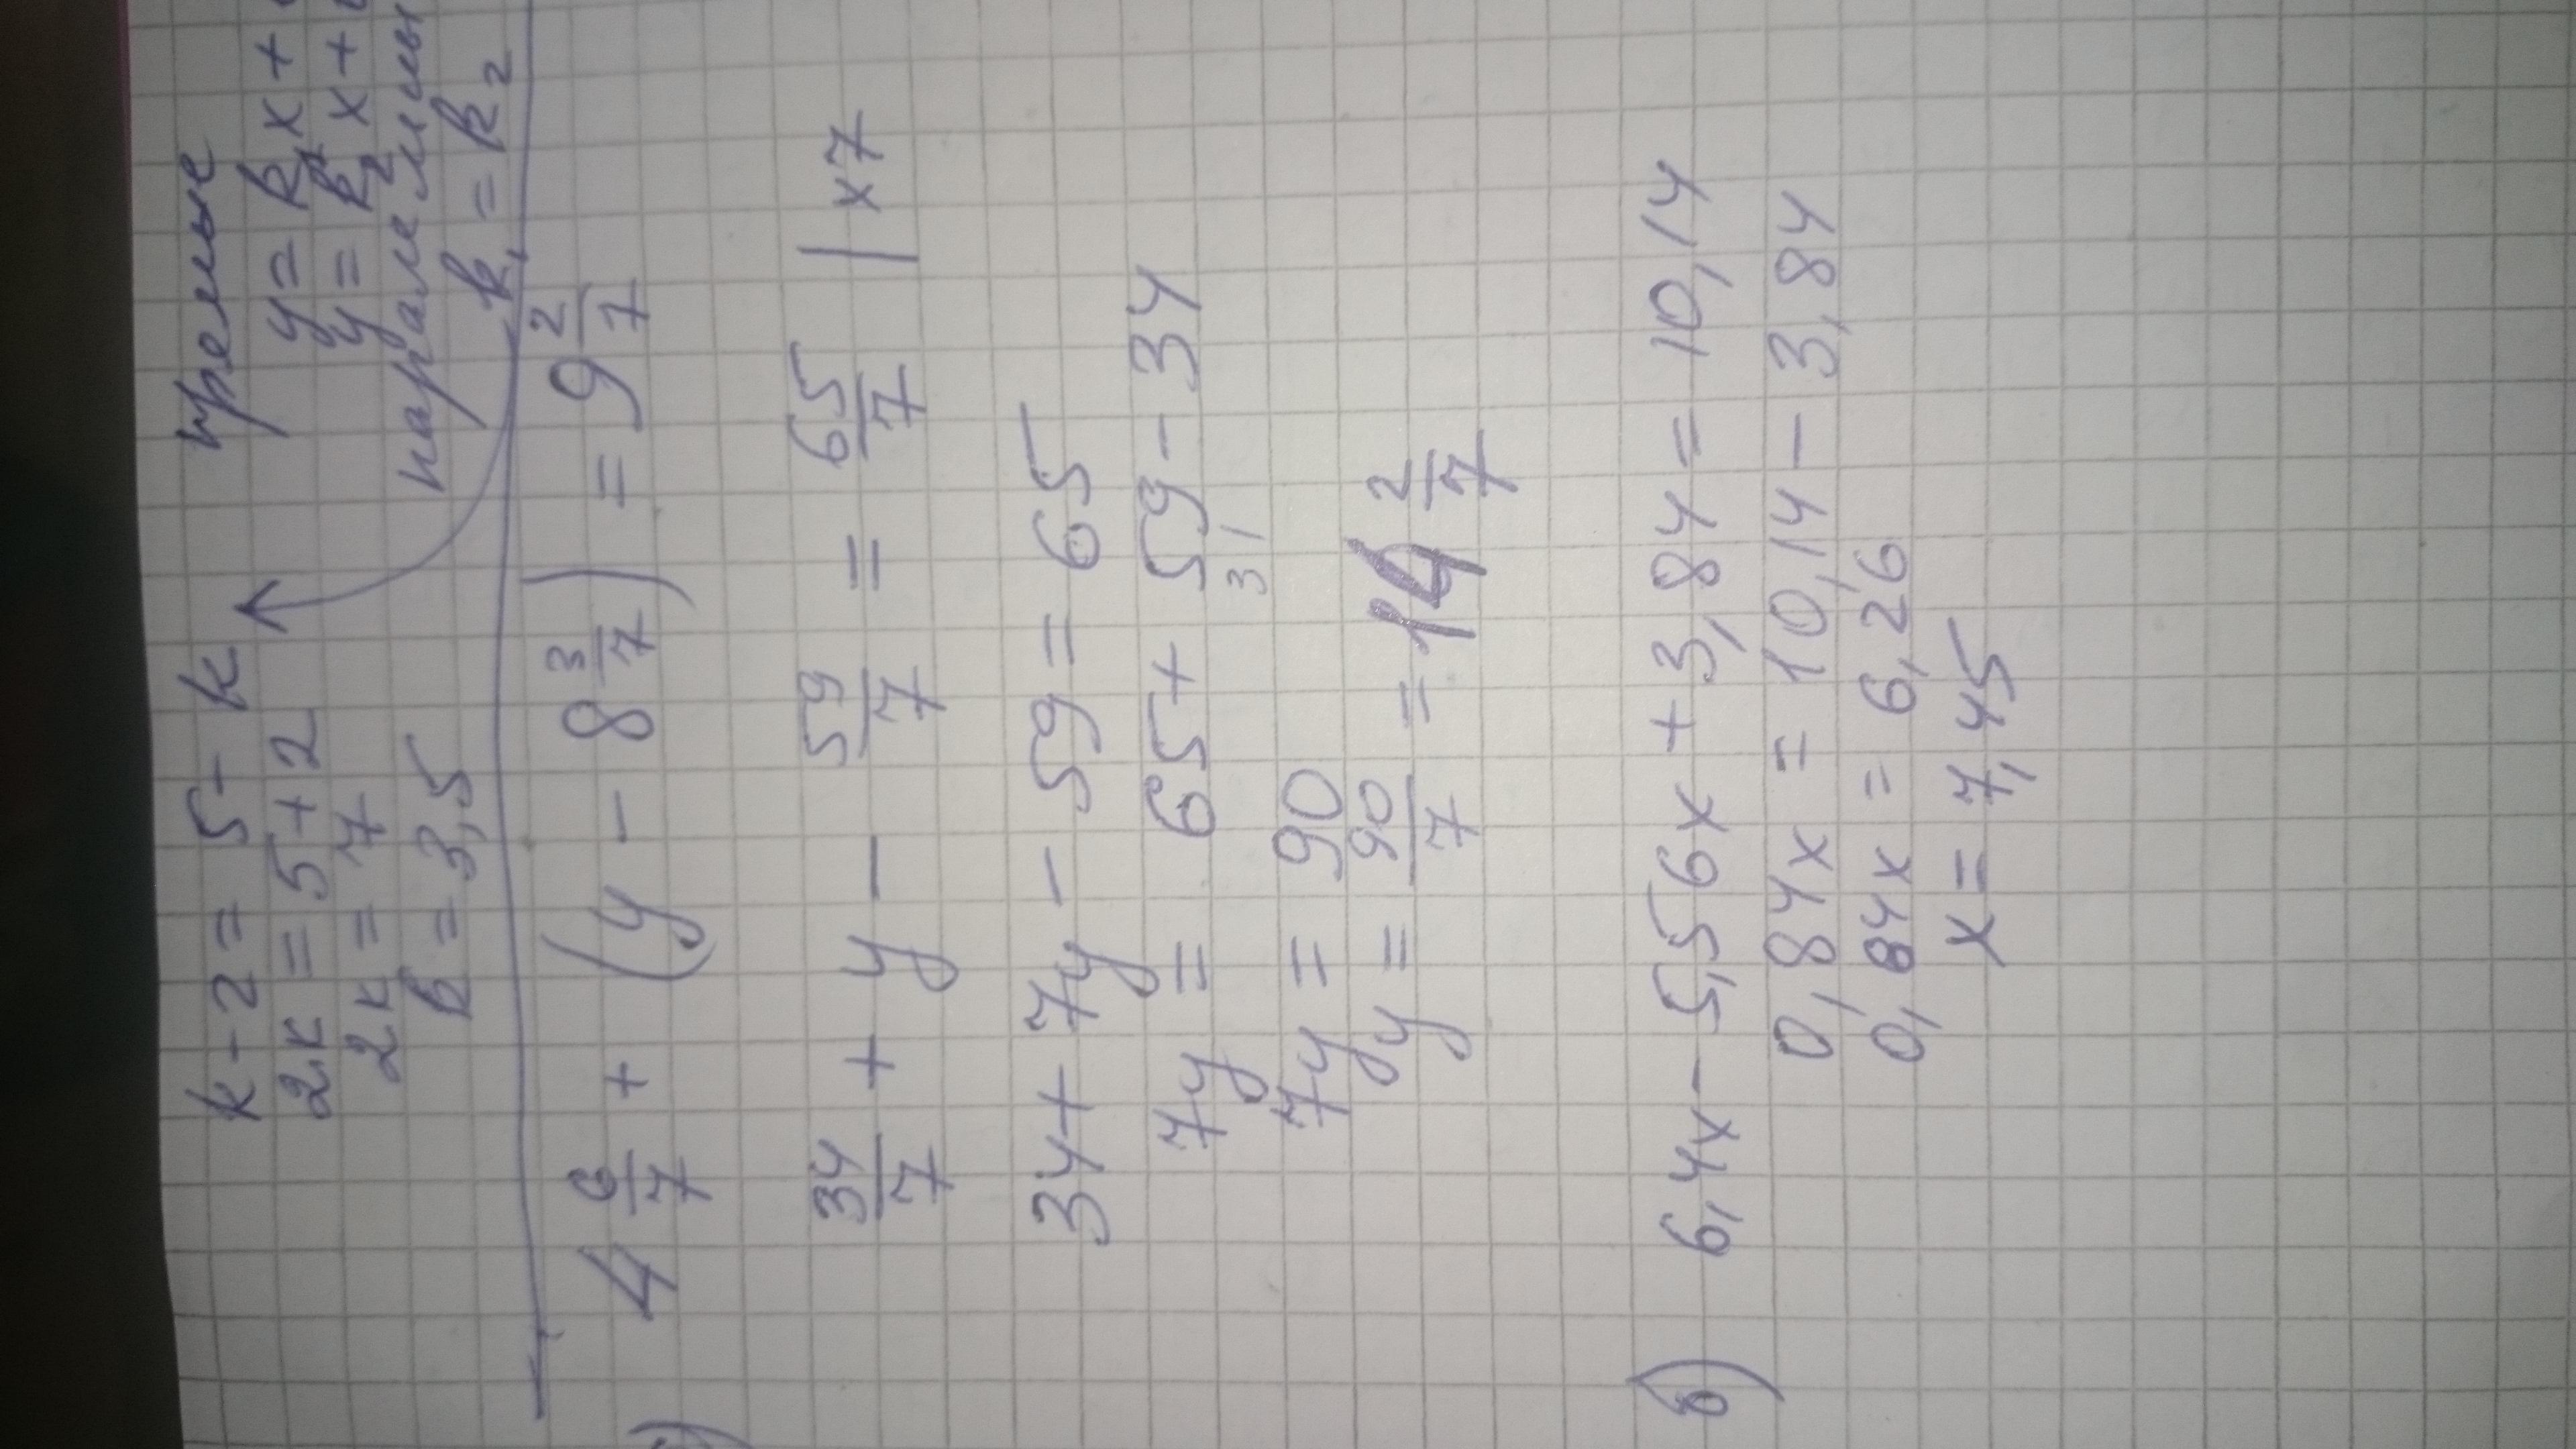 k - 2 = 5 - k
2k = 5 + 2
2k = 7
k = 3,5
прямые
y = k₁x +
y = k₂x +
параллельны
k₁ = k₂
4 6/7 + (y - 8 3/7) = 9 2/7
34/7 + y - 59/7 = 65/7 | x7
34 + 7y - 59 = 65
7y = 65 + 59 - 34
31
7y = 90
y = 90/7 = 14 2/7
б) 6,4x - 5,56x + 3,84 = 10,14
0,84x = 10,14 - 3,84
0,84x = 6,26
x = 7,45